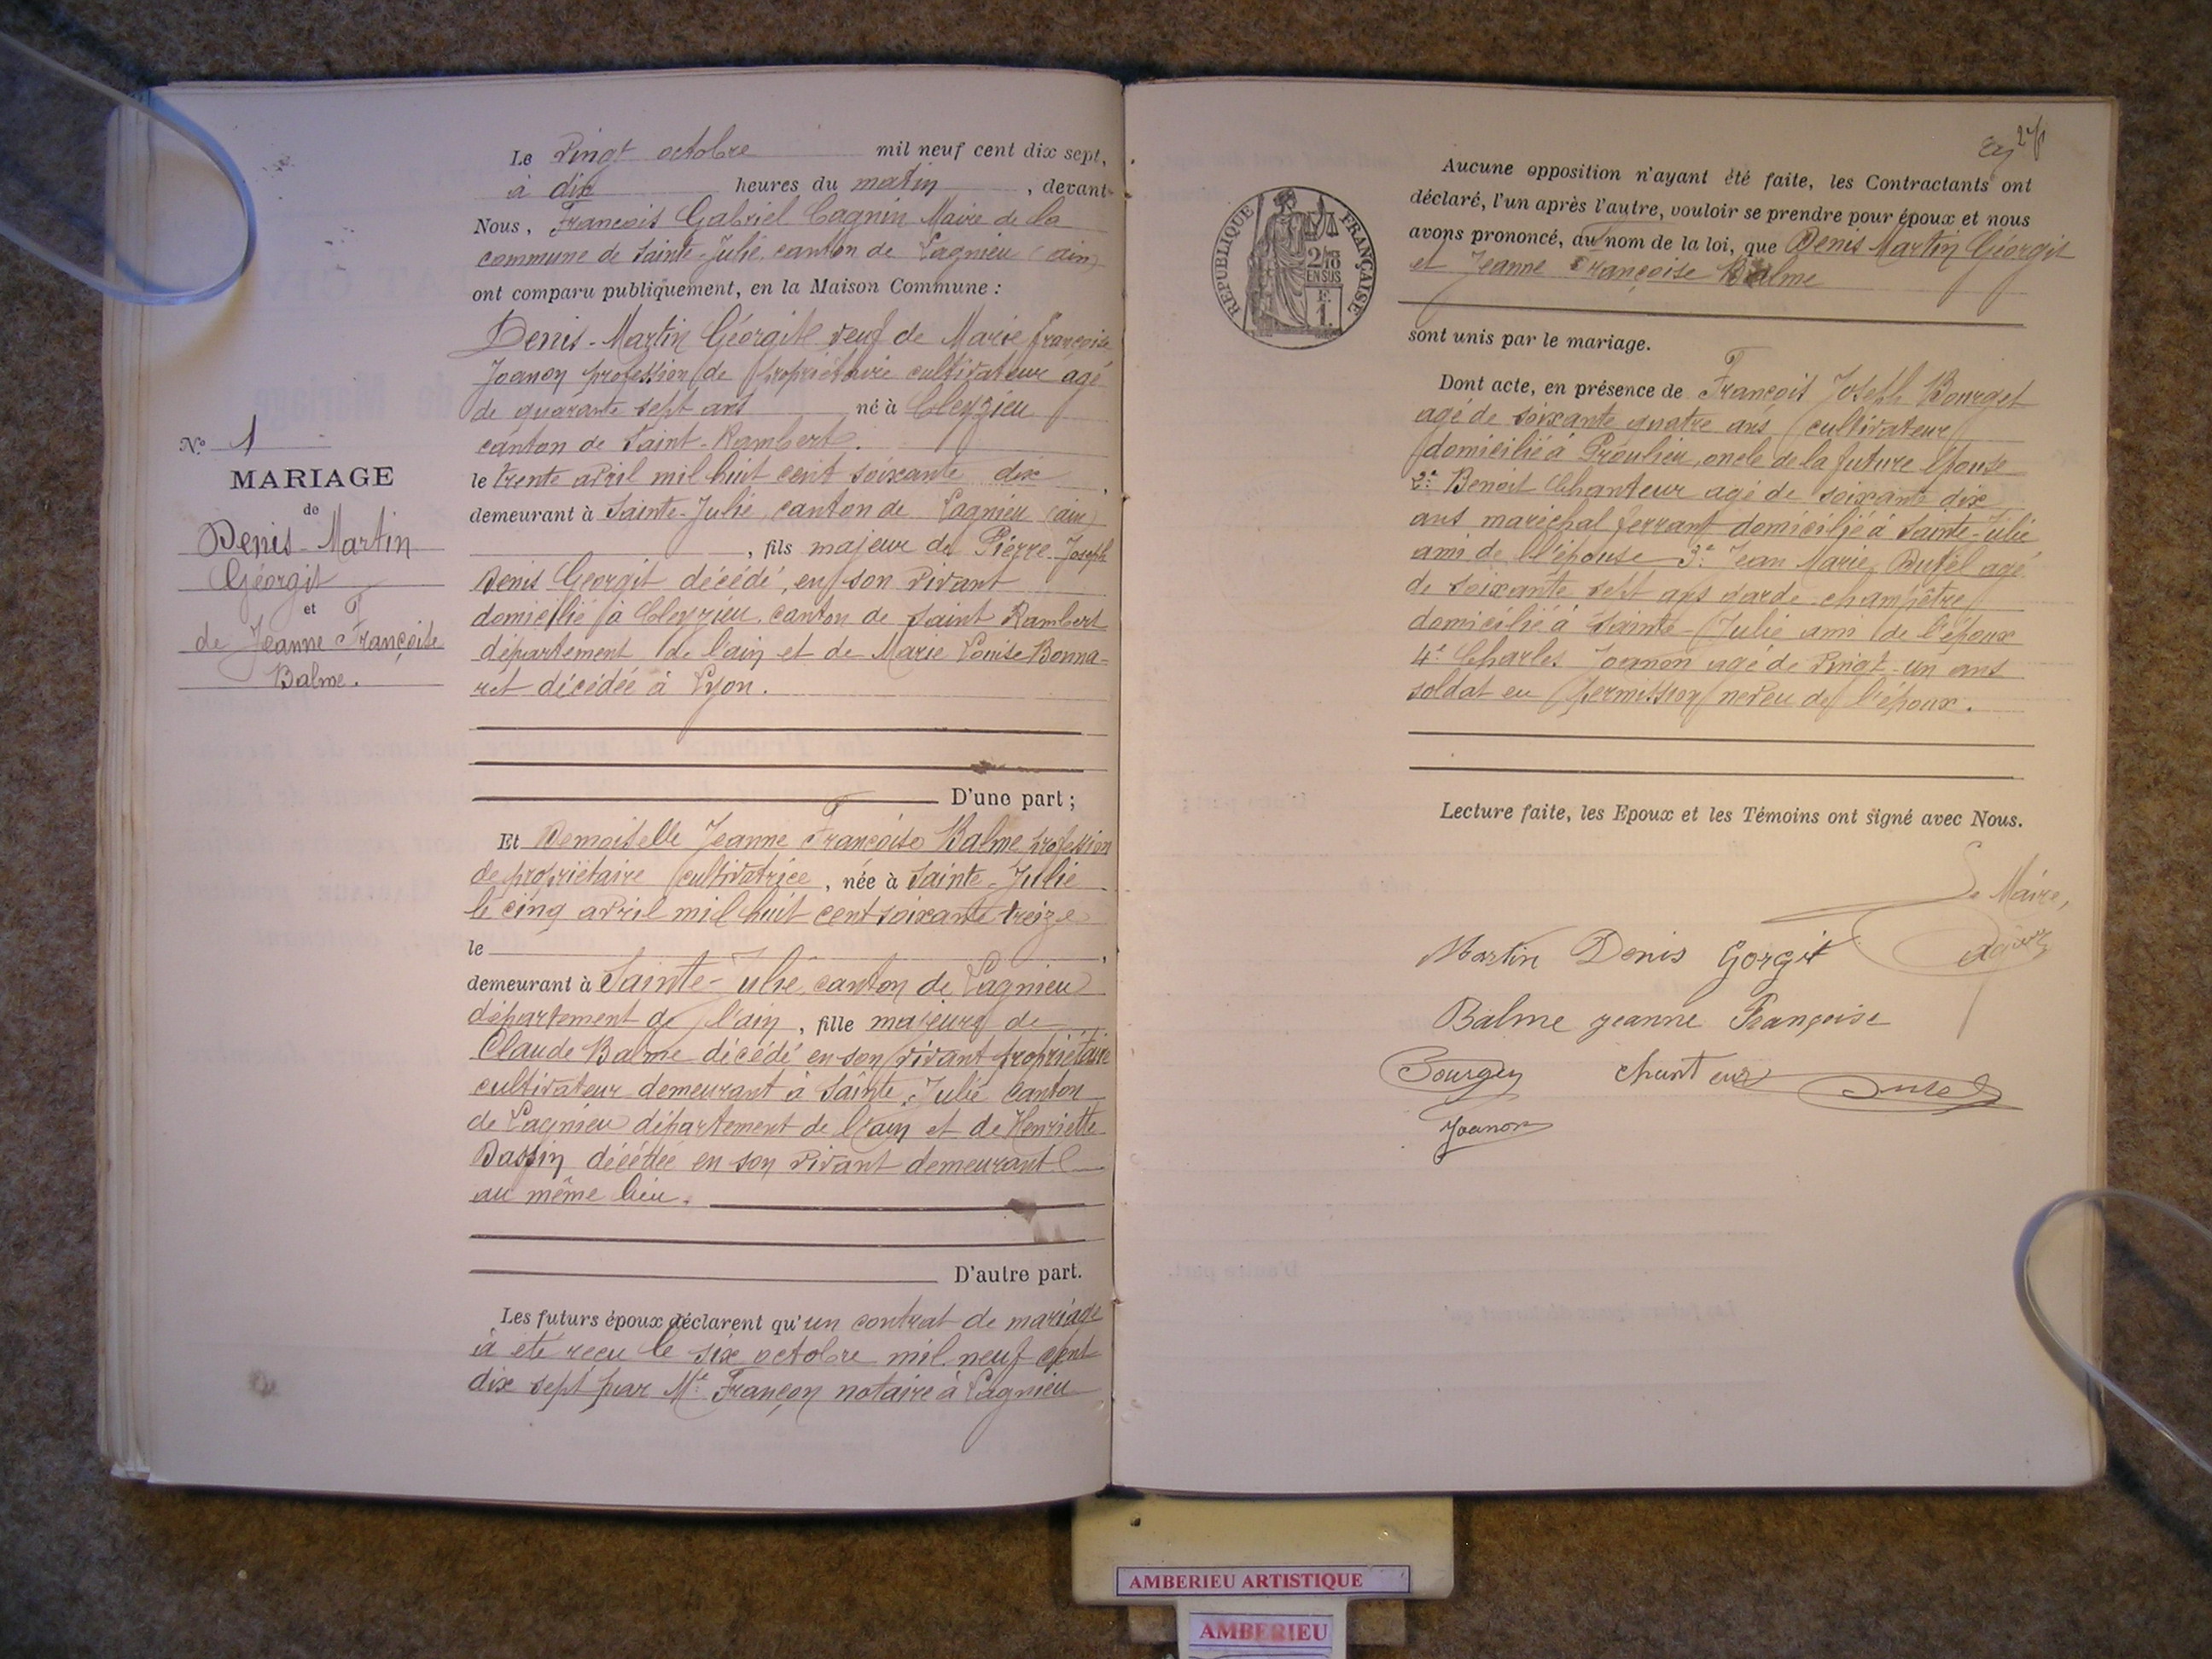 Le vingt octobre mil neuf cent dix sept,
à dix heures du matin, devant
Nous, Francois Gabriel Cagnin Maire de la
commune de Sainte-Julie, canton de Lagnieu (ain)
ont comparu publiquement, en la Maison Commune :
Denis-Martin Géorgit veuf de Marie françoise
Joanon profession de propriétaire cultivateur agé
de quarante sept ans né à Cleyzieu
canton de Saint-Rambert.
le trente avril mil huit cent soixante dix,
demeurant à Sainte-Julie, canton de Lagnieu (ain)
, fils majeur de Pierre Joseph
Denis Georgit décédé, en son vivant
domicilié à Cleyzieu, canton de Saint Rambert
département de l'ain et de Marie Louise Bonna-
ret décédée à Lyon.
D'une part ;
Et Demoiselle Jeanne Françoise Balme profession
de propriétaire cultivatrice, née à Sainte-Julie
le cinq avril mil huit cent soixante treize
le ,
demeurant à Sainte-Julie, canton de Lagnieu
département de l'ain, fille majeure de
Claude Balme décédé en son vivant propriétaire
cultivateur demeurant à Sainte-Julie canton
de Lagnieu département de l'ain et de Henriette
décédée en son vivant demeurant
au même lieu.
D'autre part.
Les futurs époux déclarent qu'un contrat de mariage
à été reçu le six octobre mil neuf cent
dix sept par Me Françon notaire à Lagnieu
N° 1
MARIAGE
de
Denis-Martin
Géorgit
et
de Jeanne Françoise
Balme.
27
REPUBLIQUE FRANÇAISE
2/10
EN SUS
F.
1.
Aucune opposition n'ayant été faite, les Contractants ont
déclaré, l'un après l'autre, vouloir se prendre pour époux et nous
avons prononcé, au nom de la loi, que Denis Martin Géorgit
et Jeanne Françoise Balme
sont unis par le mariage.
Dont acte, en présence de François Joseph Bourget
agé de soixante quatre ans cultivateur
domicilié à Proulieu, oncle de la future épouse
2e Benoit Chanteur agé de soixante dix
ans maréchal ferrant domicilié à Sainte-Julie
ami de l'épouse 3e Jean Marie Dutel agé
de soixante sept ans garde-champêtre
domicilié à Sainte-Julie ami de l'époux
4e Charles Joanon agé de vingt-un ans
soldat en permission neveu de l'époux.
Lecture faite, les Epoux et les Témoins ont signé avec Nous.
Le Maire,
Martin Denis Gorgit
Balme jeanne Françoise
Chanteur
Joanon
AMBERIEU ARTISTIQUE
AMBERIEU